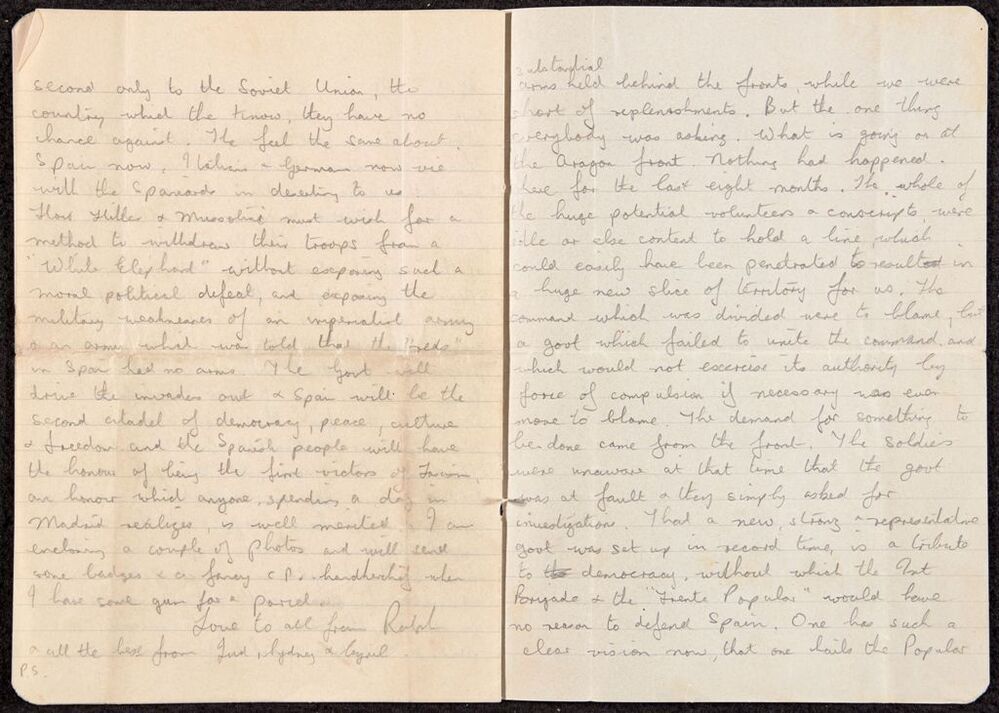 second only to the Soviet Union, the
country which the know, they have no
chance against. The feel the same about
Spain now, Italians & Germans now vie
will the Spaniards in deserting to us
How Hitler & Mussolini must wish for a
method to withdraw their troops from a
"White Elephant" without exposing such a
moral political defeat, and exposing the
military weaknesses of an imperialist army
an army what was told that the "reds"
in Spain had no arms. The Govt will
drive the invaders out & Spain will be the
second citadel of democracy, peace, culture
& freedom and the Spanish people will have
the honour of being the first victors of Fascism,
an honour which anyone, spending a day in
Madrid realizes, is well merited. I am
enclosing a couple of photos and will send
some badges & a fancy C.P. handkerchief when
I have some gum for a parcel.
Love to all from Ralph
& all the best from Sydney & Cyril
P.S.
substantial
arms held behind the fronts while we were
short of replenishments. But the one thing
everybody was asking. What is going on at
the Aragon front. Nothing had happened
here for the last eight months. The whole of
the huge potential volunteers & conscripts, were
idle or else content to hold a line, which
could easily have been penetrated to result in
a huge new slice of territory for us. The
command which was divided were to blame, but
a govt which failed to unite the command, and
which would not exercise its authority by
force of compulsion if necessary was even
more to blame. The demand for something to
be done came from the front. The soldiers
were unaware at that time that the govt
was at fault & they simply asked for
investigation. That a new, strong & representative
govt was set up in record time, is a tribute
to democracy, without which the Int
Brigade & the "Frente Popular" would have
no reason to defend Spain. One has such a
clear vision now, that one hails the Popular